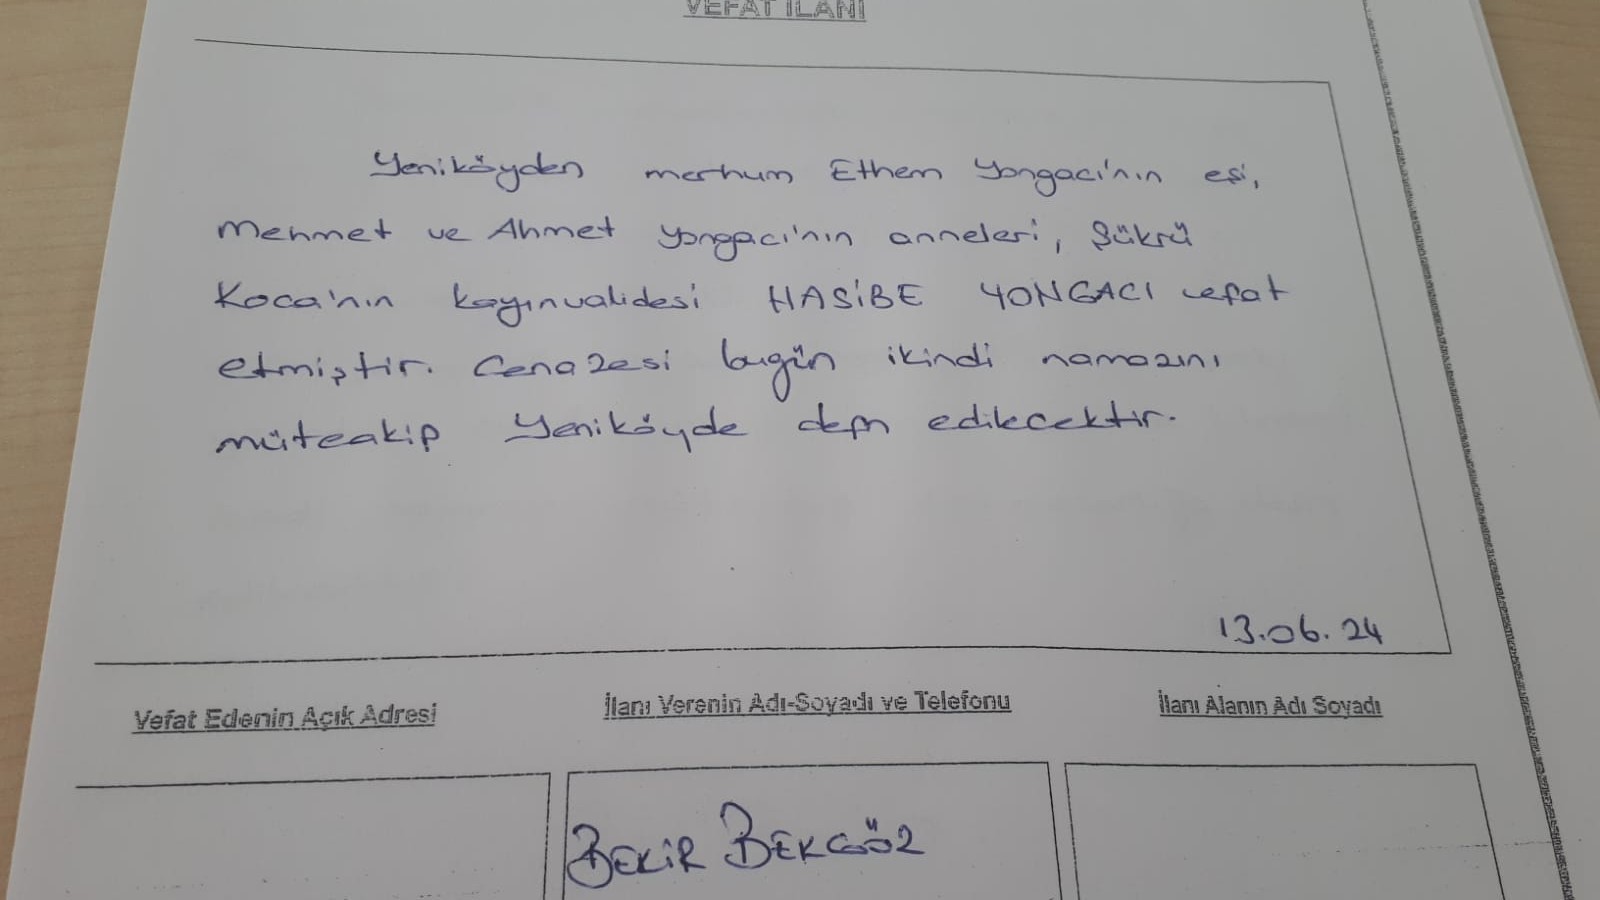 VEFAT İLANI
Yeniköyden merhum Ethem Yongacı'nın eşi,
Mehmet ve Ahmet Yongacı'nın anneleri, Şükrü
Koca'nın kayınvalidesi HASİBE YONGACI vefat
etmiştir. Cenazesi bugün ikindi namazını
müteakip Yeniköyde defn edilecektir.
13.06.24
Vefat Edenin Açık Adresi
İlanı Verenin Adı-Soyadı ve Telefonu
İlanı Alanın Adı Soyadı
BEKİR BEKGÖZ